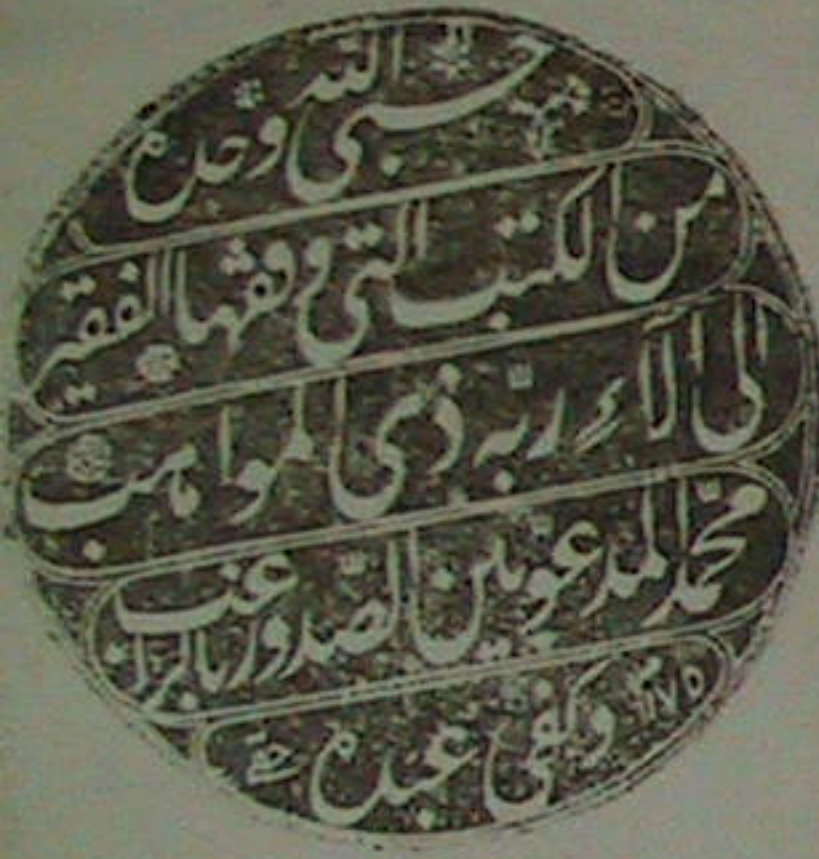 حسبى الله وحده
من الكتب التى وقفها الفقير
الى آلاء ربّه ذى المواهب
محمّد المدعوّ بين الصّدور بالراغب
وكفى عبده